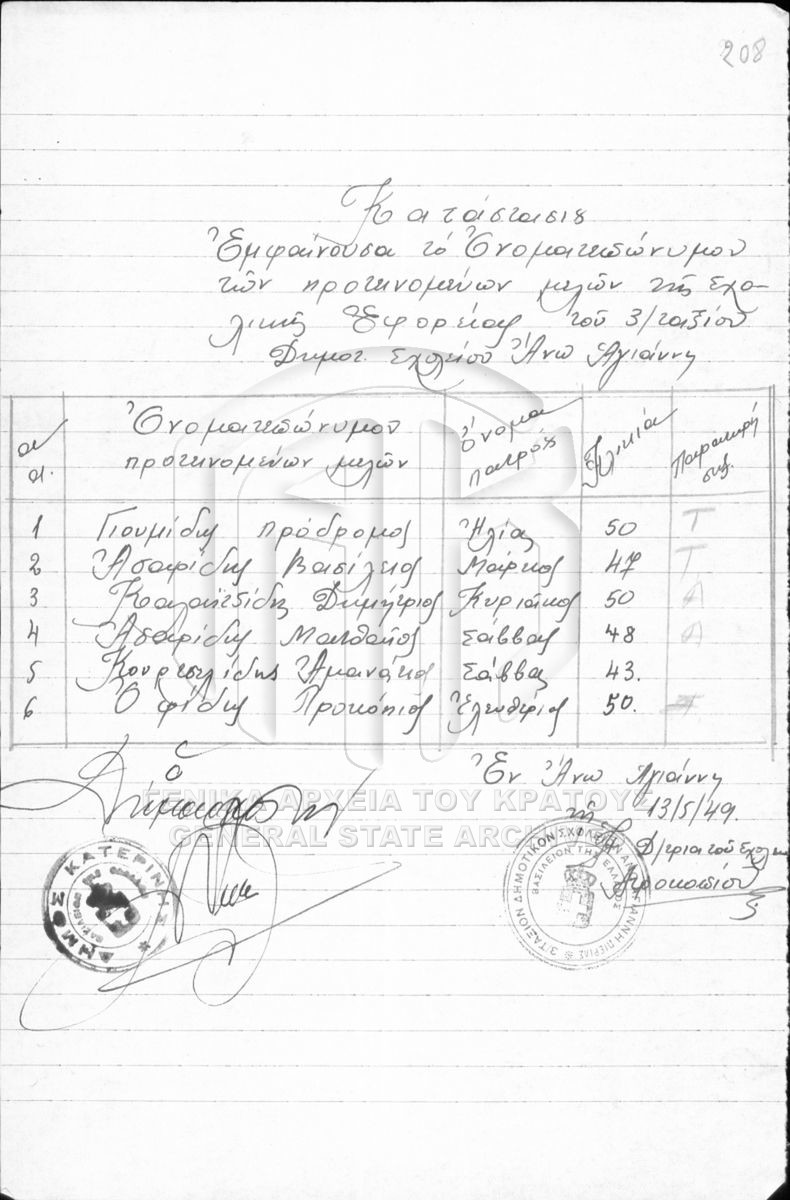 208
Κατάστασις
Ἐμφαίνουσα τό Ὀνοματεπώνυμον
τῶν προτεινομένων μελῶν τῆς σχο-
λικῆς Ἐφορείας τοῦ 3/ταξίου
Δημοτ. Σχολείου Ἄνω Ἁγιάννη
αα α. Ὀνοματεπώνυμον προτεινομένων μελῶν Ὄνομα πατρός Ἡλικία Παρατηρήσεις.
1 Γιουμίδης Πρόδρομος Ἠλίας 50 Τ
2 Ἀσαφίδης Βασίλειος Μάρκος 47 Τ
3 Δημήτριος Κυριάκος 50 Α
4 Ἀσαφίδης Ματθαῖος Σάββας 48 Α
5 Σάββας 43.
6 Προκόπιος Ἐλευθέριος 50.
Ὁ
Δήμαρχος
Ἐν Ἄνω Ἁγιάννη
τῇ 13/5/49.
Ἡ Δ/τρια τοῦ Σχολείου
ΓΕΝΙΚΑ ΑΡΧΕΙΑ ΤΟΥ ΚΡΑΤΟΥΣ
GENERAL STATE ARCHIVES
ΔΗΜΟΣ ΚΑΤΕΡΙΝΗΣ
3/ΤΑΞΙΟΝ ΔΗΜΟΤΙΚΟΝ ΣΧΟΛΕΙΟΝ ΑΝΩ ΑΓΙΑΝΝΗ ΠΙΕΡΙΑΣ
ΒΑΣΙΛΕΙΟΝ ΤΗΣ ΕΛΛΑΔΟΣ